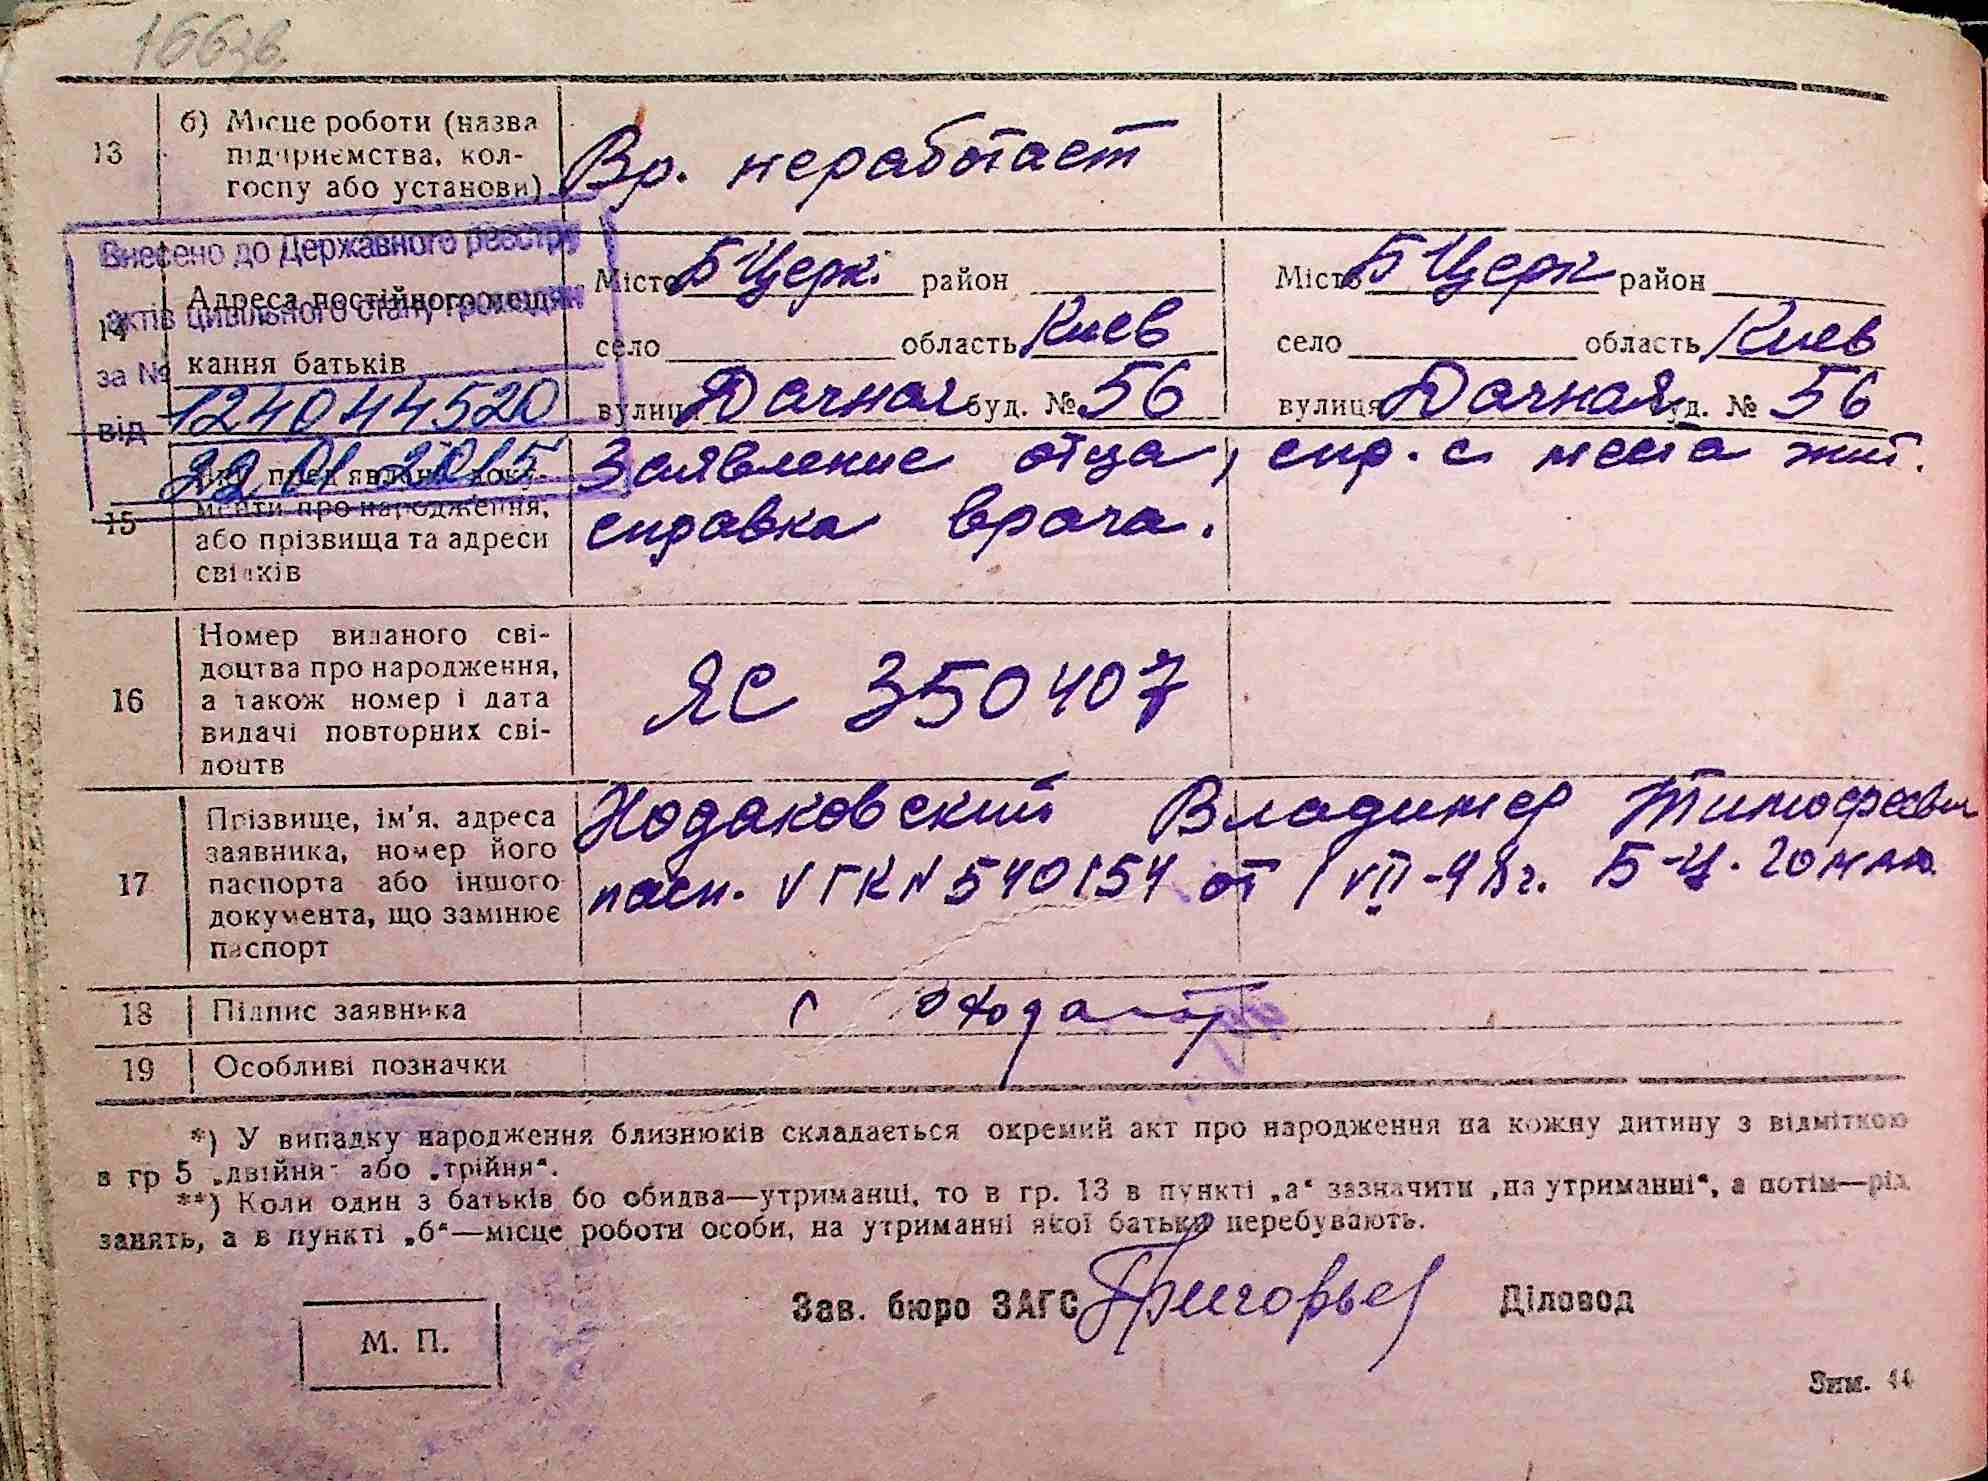 166зв
13
б) Місце роботи (назва
підприємства, кол-
госпу або установи)
Вр. неработает
Внесено до Державного реєстру
актів цивільного стану громадян
за №
124044520
від
22.01.2015
14
Адреса постійного мешкання батьків
Місто Б Церк. район
село область Киев
вулиця Дачная буд. № 56
Місто Б Церк район
село область Киев
вулиця Дачная буд. № 56
15
пред'явлені доку-
менти про народження,
або прізвища та адреси
свідків
Заявление отца, спр. с места жит.
справка врача.
16
Номер виданого сві-
доцтва про народження,
а також номер і дата
видачі повторних сві-
доцтв
ЯС 350407
17
Прізвище, ім'я, адреса
заявника, номер його
паспорта або іншого
документа, що замінює
паспорт
Ходаковский Владимер Тимофееви
пасп. VГК N 540154 от 1 VII-48г. Б-Ц. ГОМ
18
Підпис заявника
19
Особливі позначки
*) У випадку народження близнюків складається окремий акт про народження на кожну дитину з відміткою
в гр 5 „двійня" або „трійня".
**) Коли один з батьків бо обидва—утриманці, то в гр. 13 в пункті „а" зазначити „на утриманні", а потім—рід
занять, а в пункті „б"—місце роботи особи, на утриманні якої батьки перебувають.
Зав. бюро ЗАГС Григорьев
Діловод
М. П.
Зим. 44